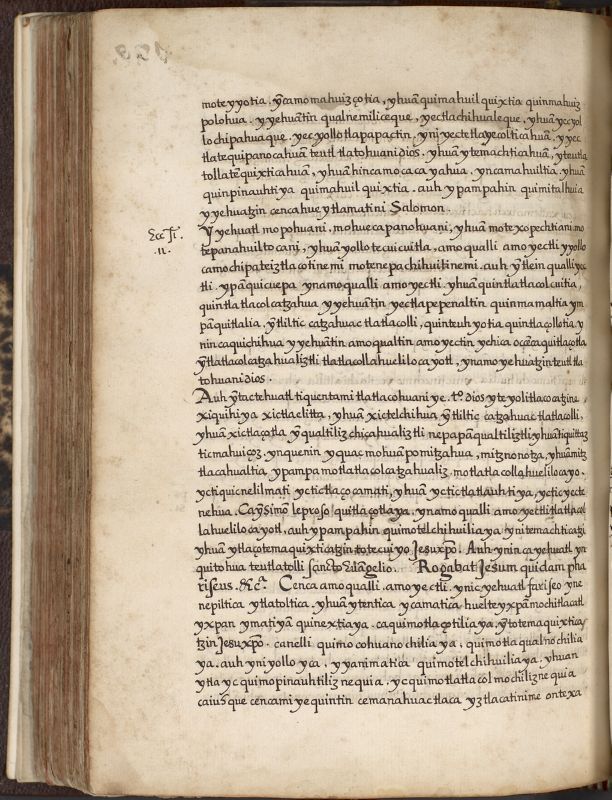 moteyyotia. yn̄camo mahuizçotia, yhuā quimahuilquixtia quinmahuiz
polohua. yyehuātin qualnemiliceque, yectlachihualeque, yhuā yecyol
lochipahuaque. yecyollotlapapactin, yniyectetlayecolticahuā, yyec
tlatequipanocahuā teutl tlatohuani dios. yhuā ytemachticahuā, yteutla
tollatēquixticahuā, yhuā hincamocacayahua. yncamahuiltia. yhuā
quinpinauhtiya quimahuilquixtia. auh ypampahin quimitalhuia
yyehuatzin cencahueytlamatini Salomon.
Eccī.
11.
Yyehuatl mopohuani, mohuecapanohuani, yhuā moteyxopechtiani mo
tepanahuiltocani, yhuā yollotecuicuitla, amo qualli amo yectli yyollo
camochipateiztlaçotinemi motenepachihuitinemi. auh yn̄tlein qualli yec
tli. ypā quicuepa ynamoqualli amoyectli. yhuā quintlatlacolcuitia,
quintlatlacolcatzahua yyehuātin yectlapepenaltin quinmamaltia ym
pā quitlalia. yn̄tliltic catzahuac tlatlacolli, quinteuhyotia quintlaçolotia, y
nincaquichihua yyehuātin amoqualtin amoyectin ychica oçāca quitlaçotla
yn̄tlatlacolcatzahualiztli tlatlacollahuelilocayotl, ynamoyehuatzin teutl tla
tohuani dios.
Auh yn̄tactehuatl tiquentami titlatlacohuaniye. tto dios yteyolitlacocatzine
xiquihiya xictlaelitta, yhuā xictelchihua yn̄tliltic catzahuac tlatlacolli,
yhuā xictlaçotla yn̄qualtiliz chicahualiztli nepapā qualtiliztli yhuā tiquittaz
ticmahuiçoz. ynquenin yquac mohuāpomitzahua, mitznonotza, yhuā mitz
tlacahualtia ypampa motlatlacolcatzahualiz. motlatlacollahuelilocayo.
yctiquicnelilmati yctictlaçocamati, yhuā yctictlatlauhtiya, ycticyecte
nehua. Cayn̄simō leproso quitlaçotlaya, ynamoqualli amoyectli tlatlacol
lahuelilocayotl, auh ypampahin quimotelchihuiliaya yn̄itemachticatzi
yhuā yn̄tlaçotemaquixticatzin totecuiyo Jesuxpō. Auh yn̄ic aycyehuatl yn
quitohua teutlatolli sancto Euāgelio. Rogabat Jesum quidam pha
riseus. &c.ᵃ Cenca amoqualli. amoyectli. ynic yehuatl fariseo yne
nepiltica ytlatoltica. yhuā ytentica ycamatica. huelteyxpā mochitlacatl
yxpan ymatiyā quinextiaya. caquimotlaçotiliaya. yn̄totemaquixtica
tzin Jesuxpō. canelli quimocohuanochiliaya, quimotlaqualnochilia
ya. auh yniyolloyca, yyanimatica quimotelchihuiliaya. yhuan
ytlayc quimopinauhtiliznequia. yc quimotlatlacolmochiliznequia
caiusque cencamiyequintin cemanahuac tlaca yztlacatinime ontexa